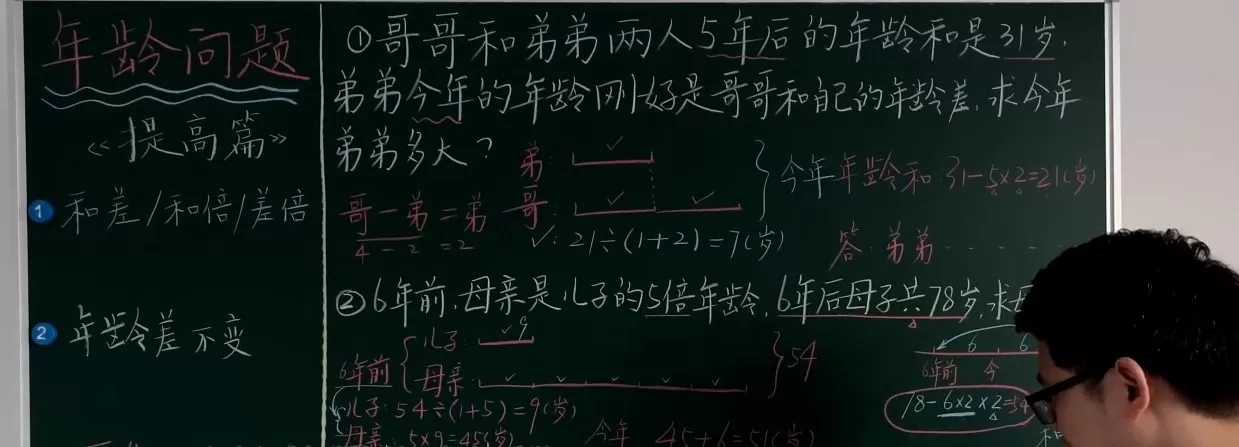 年龄问题
《提高篇》
1 和差/和倍/差倍
2 年龄差不变
①哥哥和弟弟两人5年后的年龄和是31岁,
弟弟今年的年龄刚好是哥哥和自己的年龄差,求今年
弟弟多大?
弟:
哥:
哥-弟=弟
4-2=2
今年年龄和:31-5×2=21(岁)
✓:21÷(1+2)=7(岁)
答:弟弟......
②6年前,母亲是儿子的5倍年龄,6年后母子共78岁,求
6年前
儿子: 9
母亲:
54
儿子:54÷(1+5)=9(岁)
母亲:5×9=45(岁)
今年 45+6=51(岁)
6 6
6年前 今
78-6×2×2=54